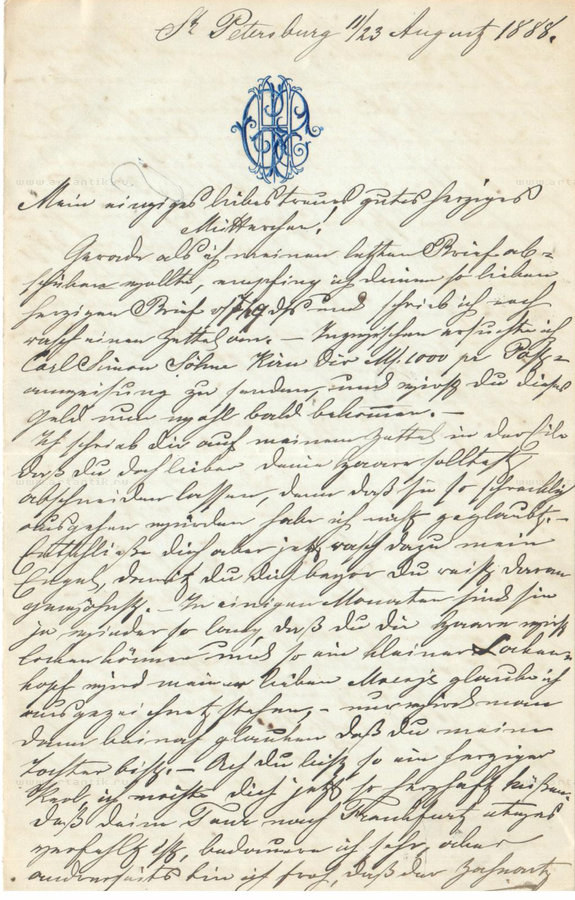 St. Petersburg 11/23 August 1888.
Mein einziges liebes treues gutes herziges
Mütterchen!
Gerade als ich meinen letzten Brief ab-
schicken wollte, empfing ich deinen so lieben
herzigen Brief und schrieb ich noch
rasch einen Zettel an. – Inzwischen ersuchte ich
Carl Simon Söhne Kirn dir M. 1000 pr Post-
anweisung zu senden, und wirst du dieses
Geld nun wohl bald bekommen. –
Ich schrieb dir auf meinem Zettel in der Eile
daß du doch lieber deine Haare solltest
abschneiden lassen, denn daß sie so schrecklich
ausgehen würden habe ich nicht geglaubt. –
Entschließe dich aber jetzt rasch dazu mein
Engel, damit du dich bevor du reist daran
gewöhnst. – In einigen Monaten sind sie
ja wieder so lang, daß du die Haare
locken können und so ein kleiner Locken-
kopf wird meiner lieben glaube ich
ausgezeichnet stehen, – nur wird man
dann beinah glauben daß du meine
Tochter bist. – Ach du bist so ein herziger
Kerl, ich möchte dich jetzt so herzhaft küßen.
daß deine Tour nach Frankfurt etwas
verfehlt ist, bedauere ich sehr, aber
andrerseits bin ich froh, daß der Zahnarzt